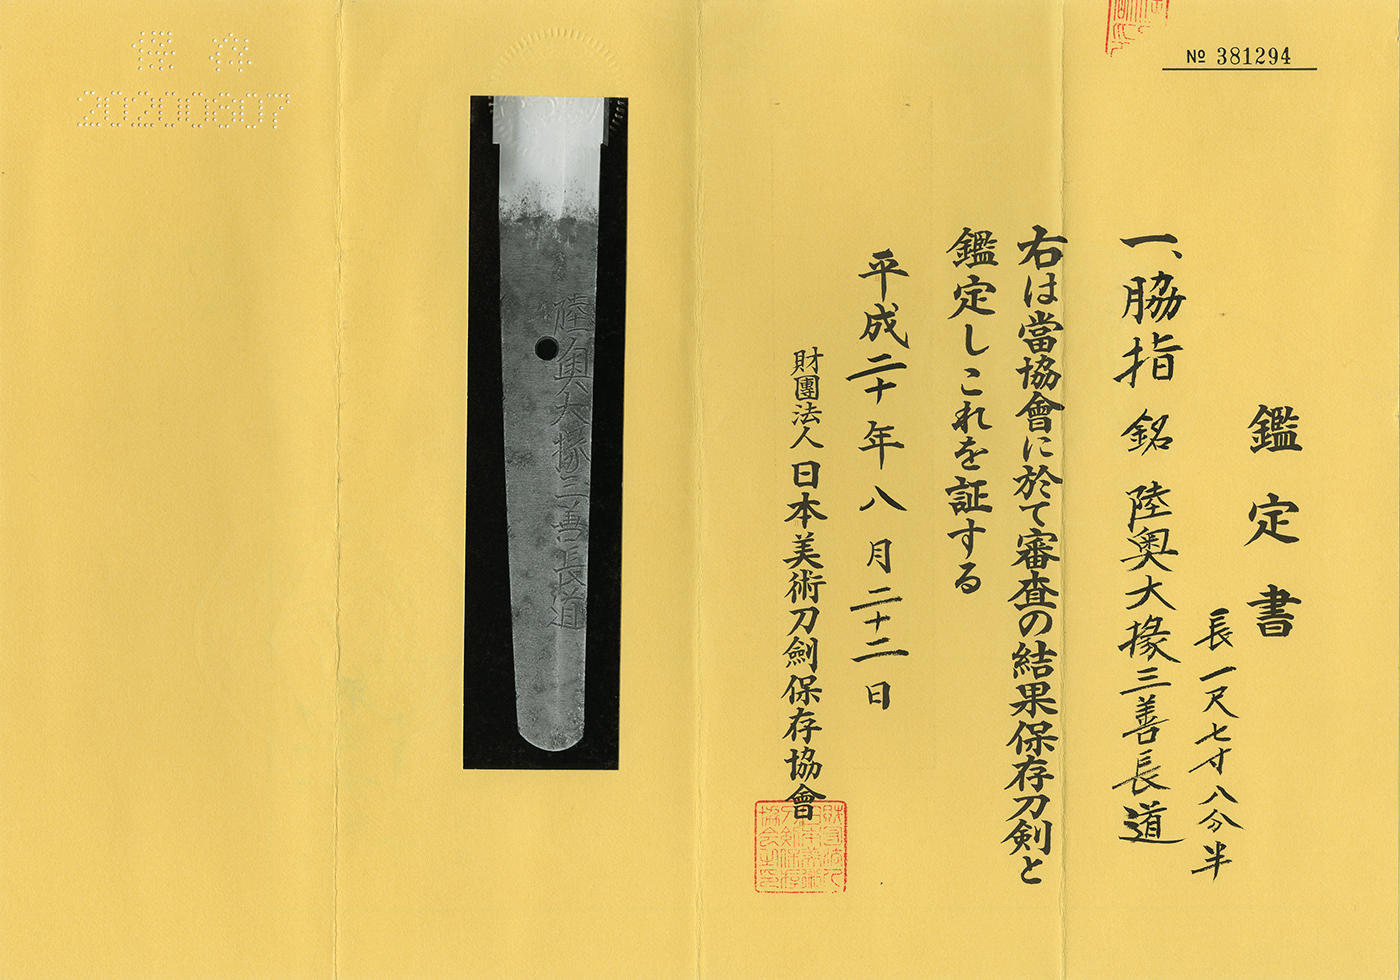 № 381294
鑑定書
一、脇指 銘 陸奥大掾三善長道
長一尺七寸八分半
右は當協會に於て審査の結果保存刀剣と
鑑定しこれを証する
平成二十年八月二十二日
財團法人日本美術刀劍保存協會
陸奥大掾三善長道
保存
20200807